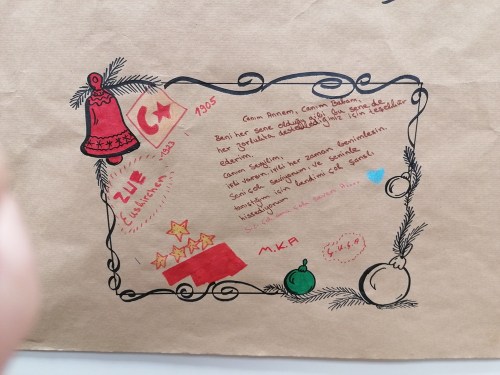 1905
1923
ZUE
Euskirchen
Canım Annem, Canım Babam,
Beni her sene olduğu gibi bu sene de
her zorlukta desteklediğiniz için teşekkür
ederim.
Canım Sevgilim,
iyiki varsın iyiki her zaman benimlesin.
Seni çok seviyorum ve seninle
tanıştığım için kendimi çok şanslı
hissediyorum
M.K.A